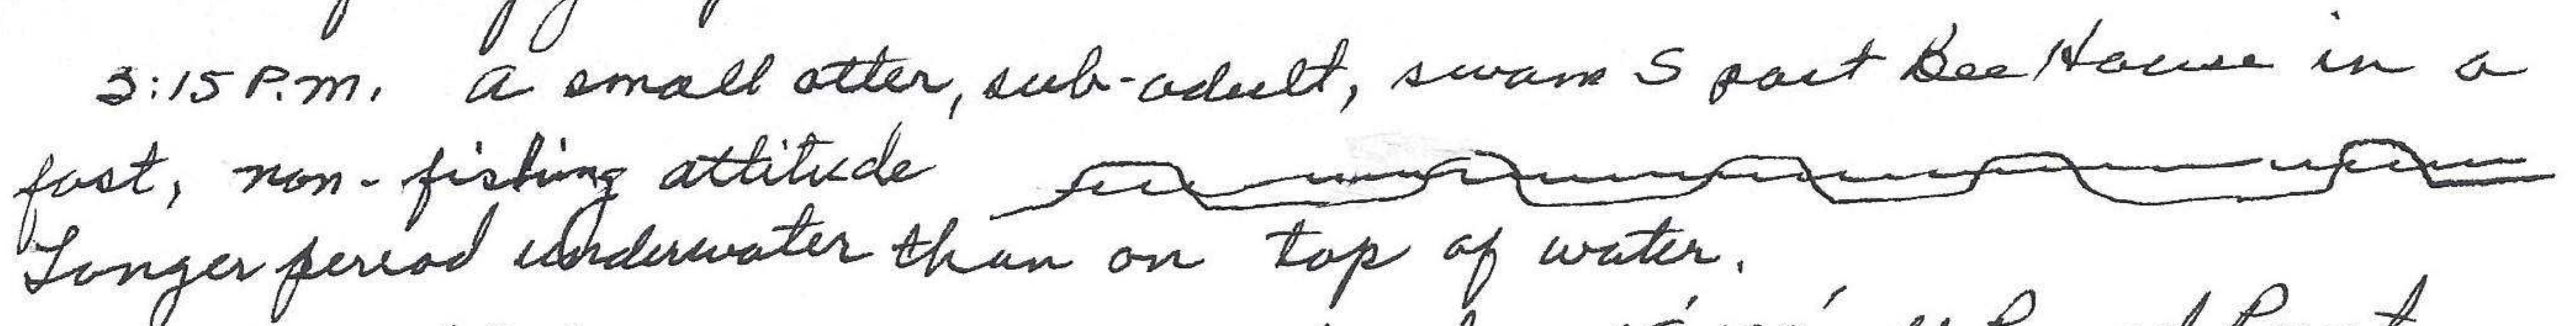 3:15 P.M. A small otter, sub-adult, swam S past Bee House in a
fast, non-fishing attitude
Longer period underwater than on top of water.